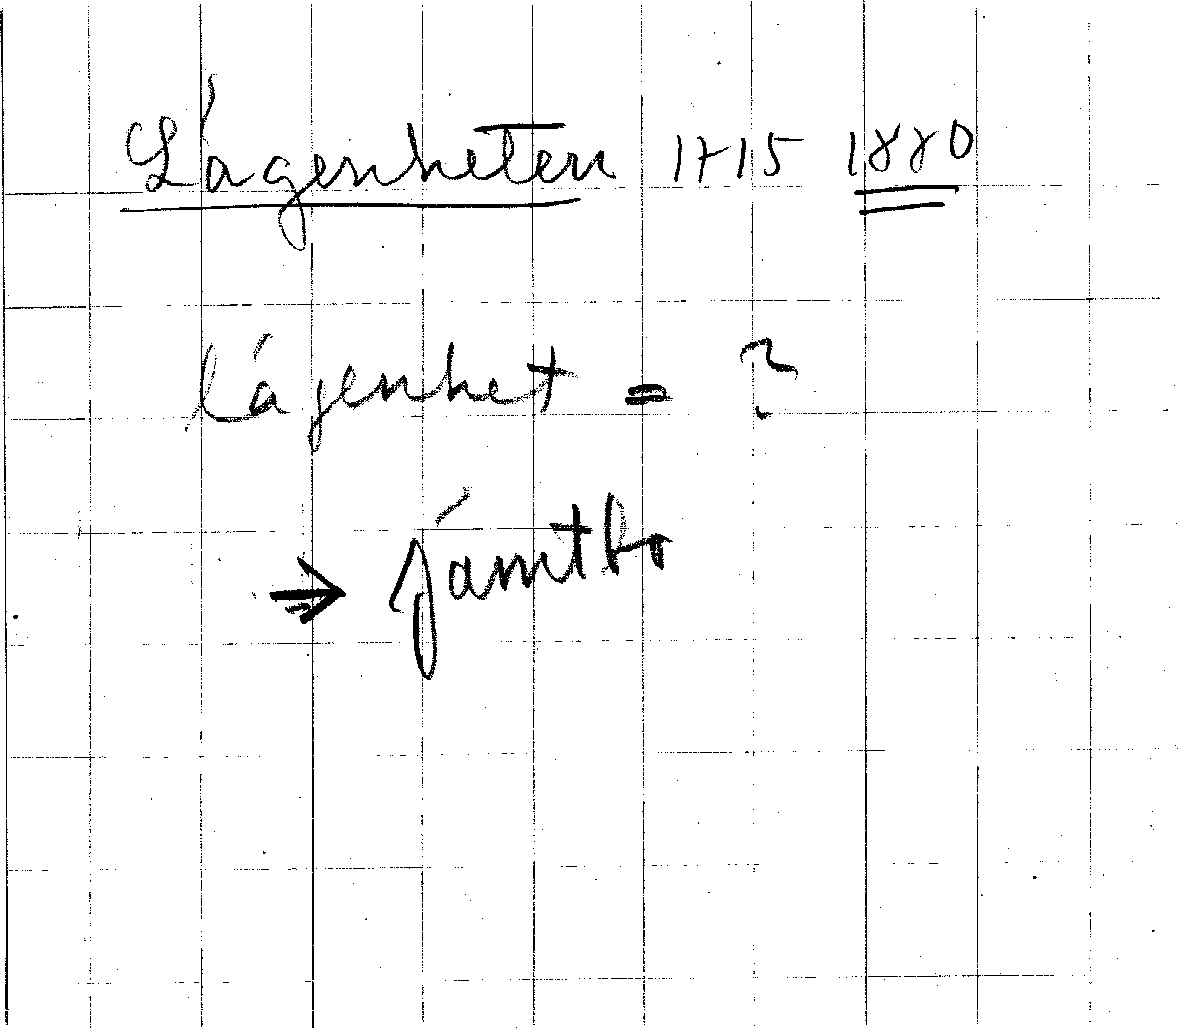 Lágenheten 1715 1880
lágenhet = ?
→ jámtbo